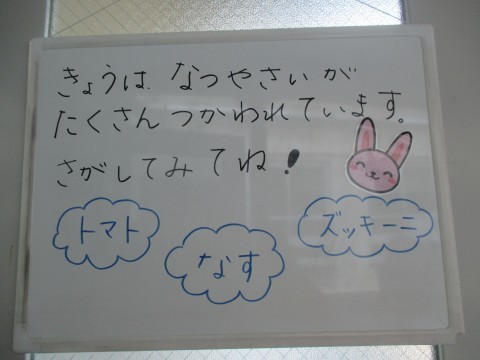 きょうは なつやさいが
たくさんつかわれています。
さがしてみてね!
トマト
なす
ズッキーニ